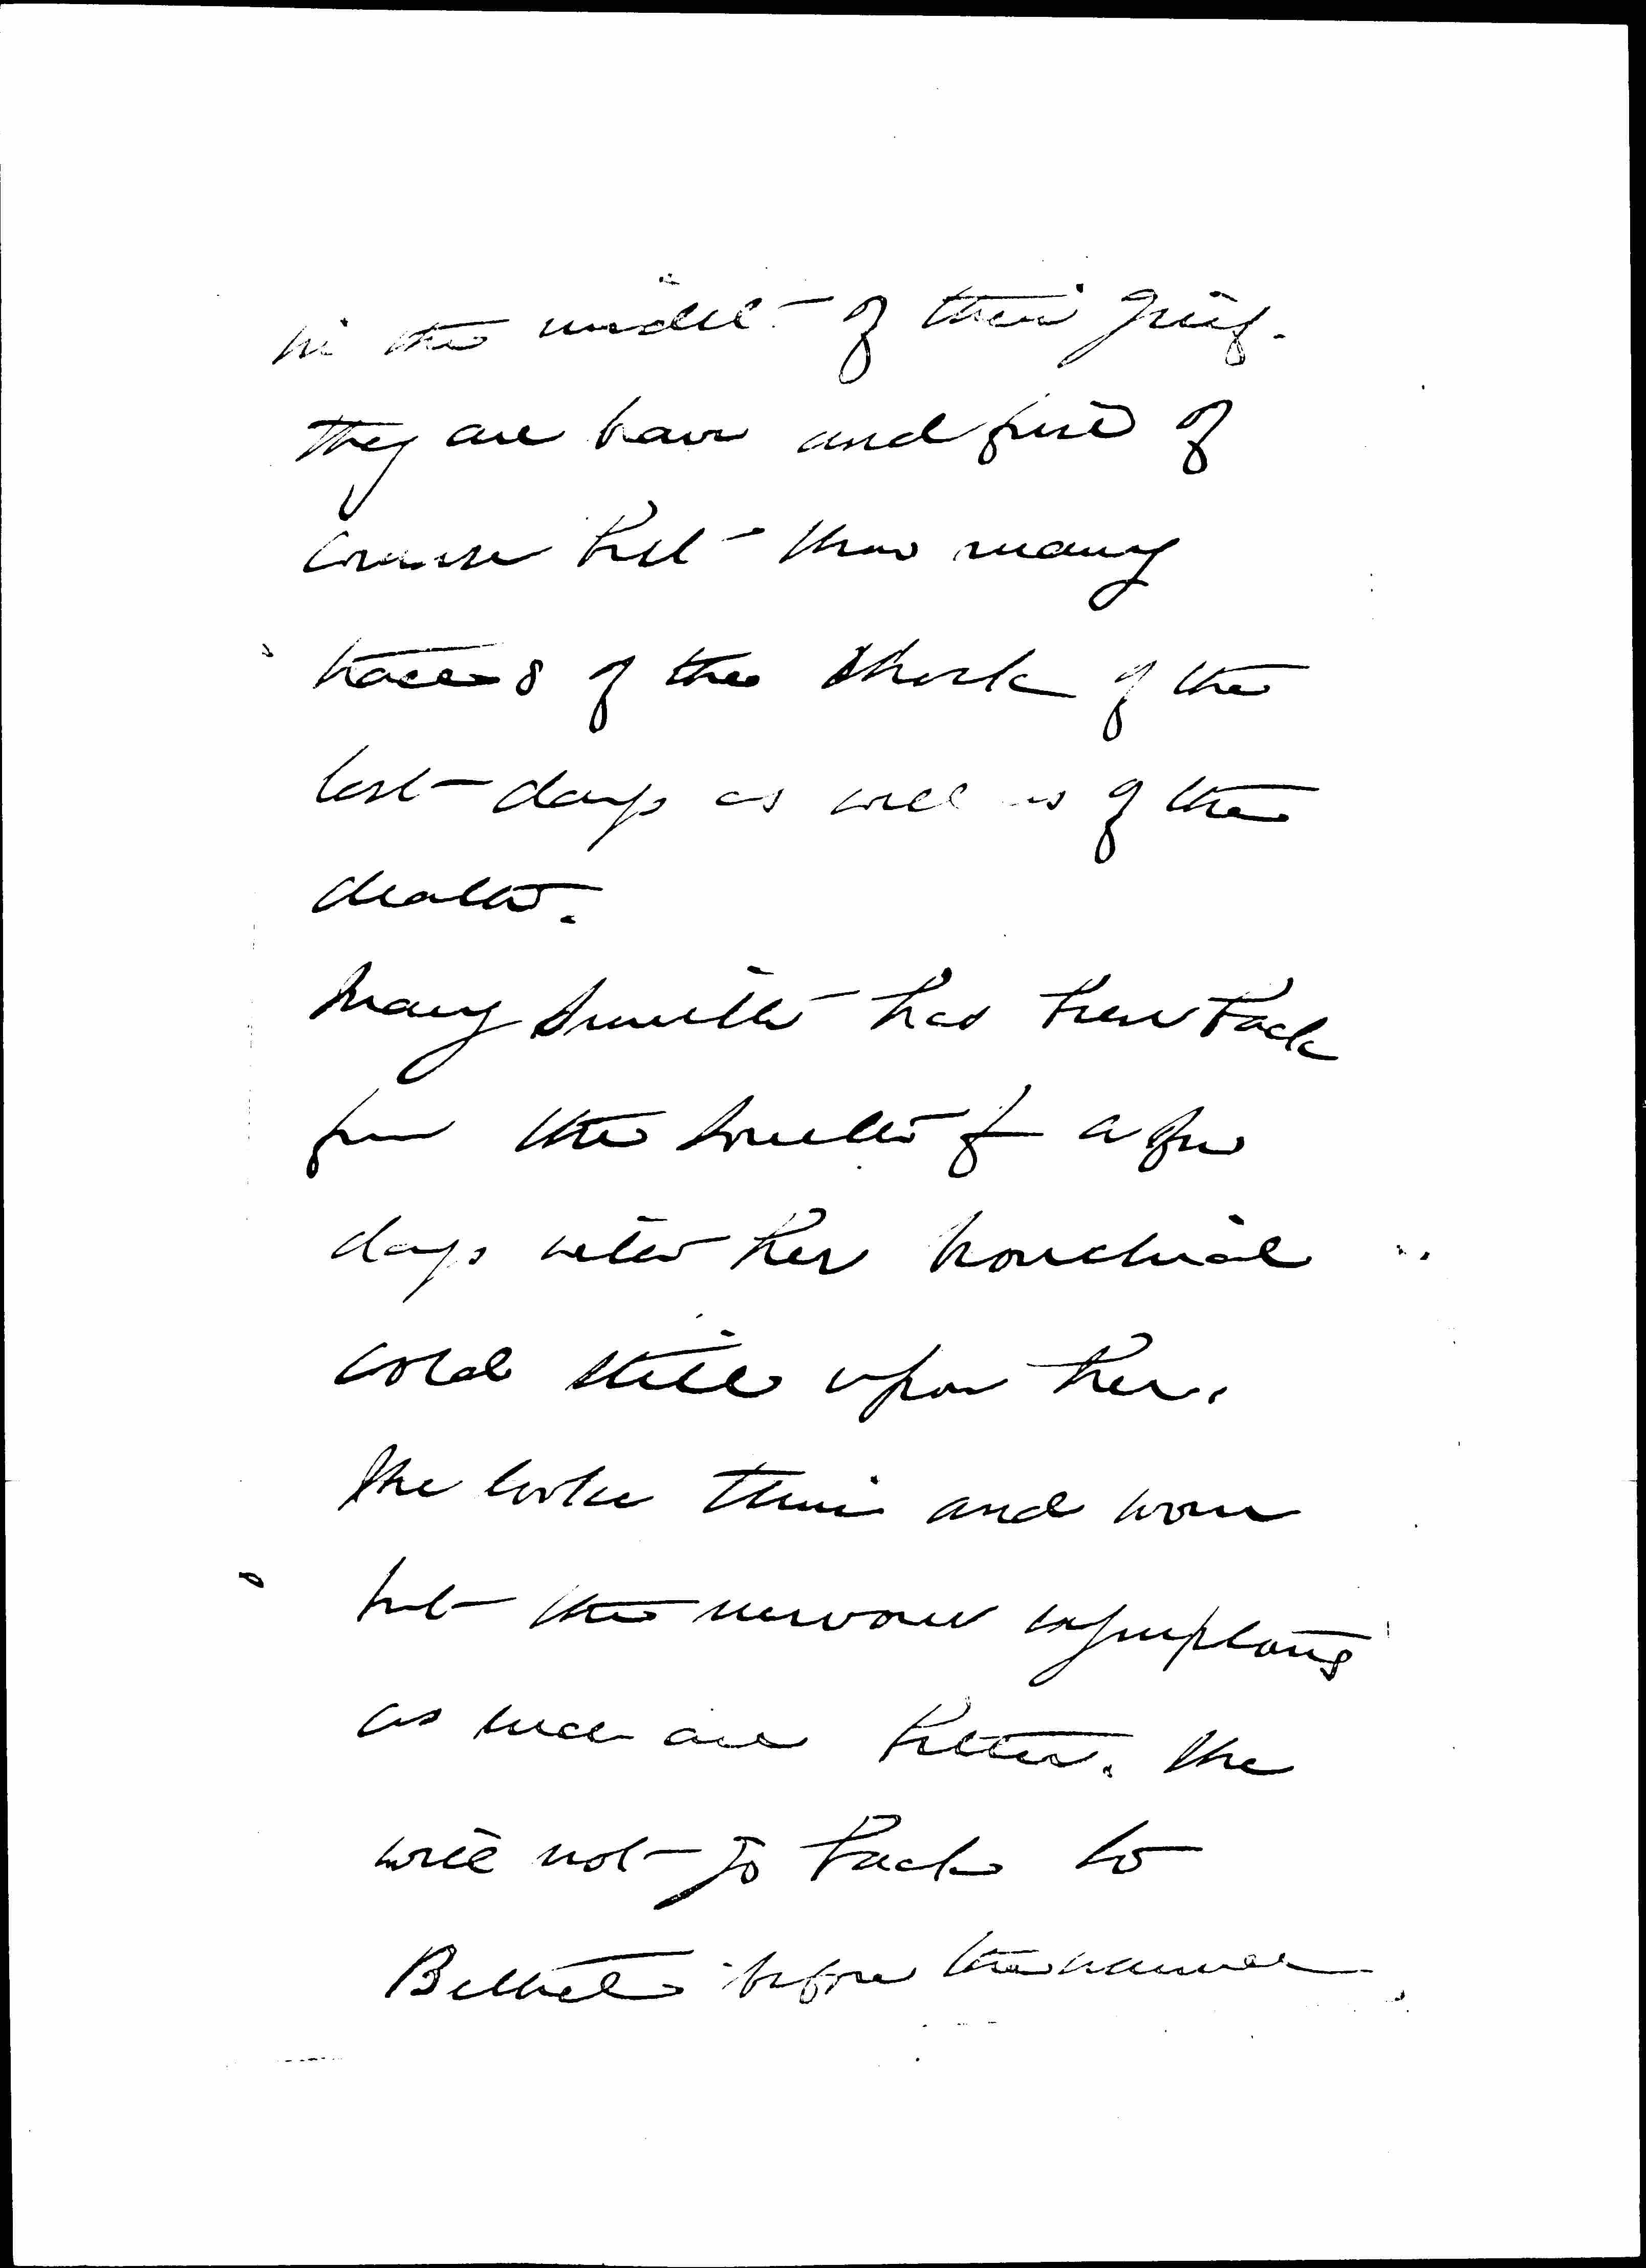 in the midst of their grief.
They are brave and fine of
course but show many
traces of the shock of the
last days as well as of the
death.
Mary Smith has been back
from the South for a few
days with her bronchial
cold still upon her.
She looks thin and worn
but the nervous symptoms
as such are better. She
will not go back to
Bethel before the summer